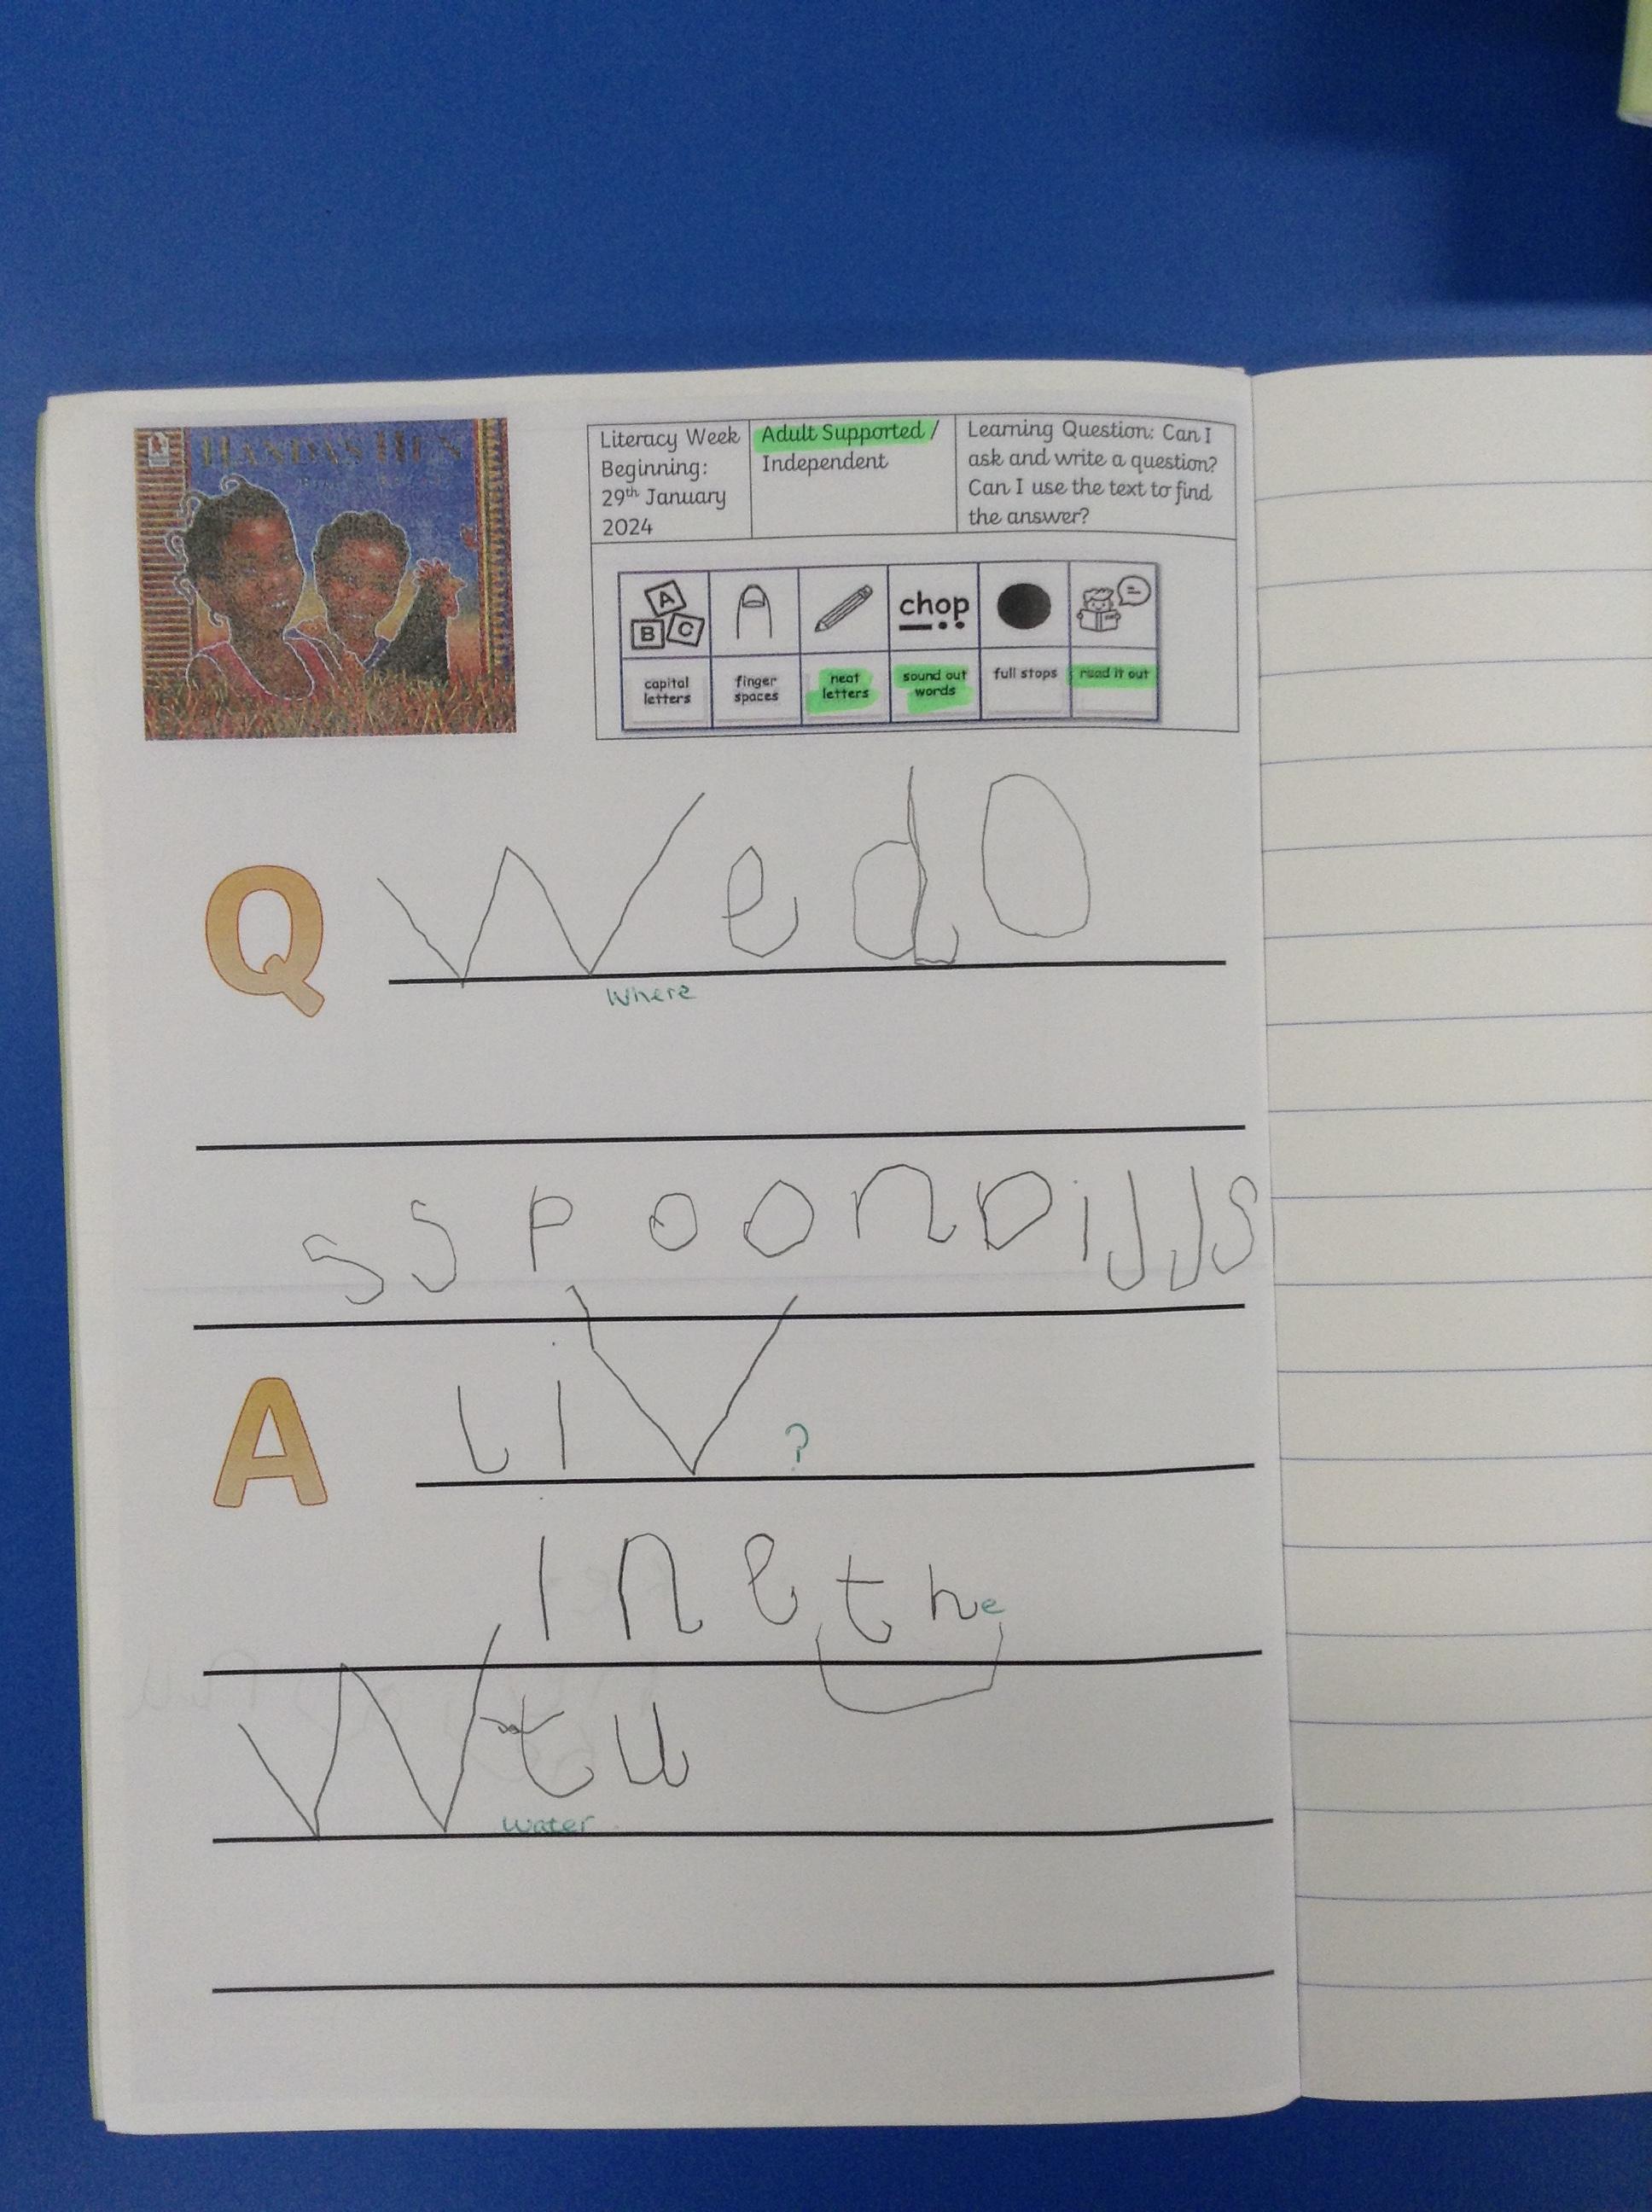 HANDA'S HEN
Literacy Week
Beginning:
29th January
2024
Adult Supported /
Independent
Learning Question: Can I
ask and write a question?
Can I use the text to find
the answer?
A
B C
chop
capital
letters
finger
spaces
neat
letters
sound out
words
full stops
read it out
Q
WedO
Where
sspoonDijjs
A
liV ?
Inethe
Wtu
water